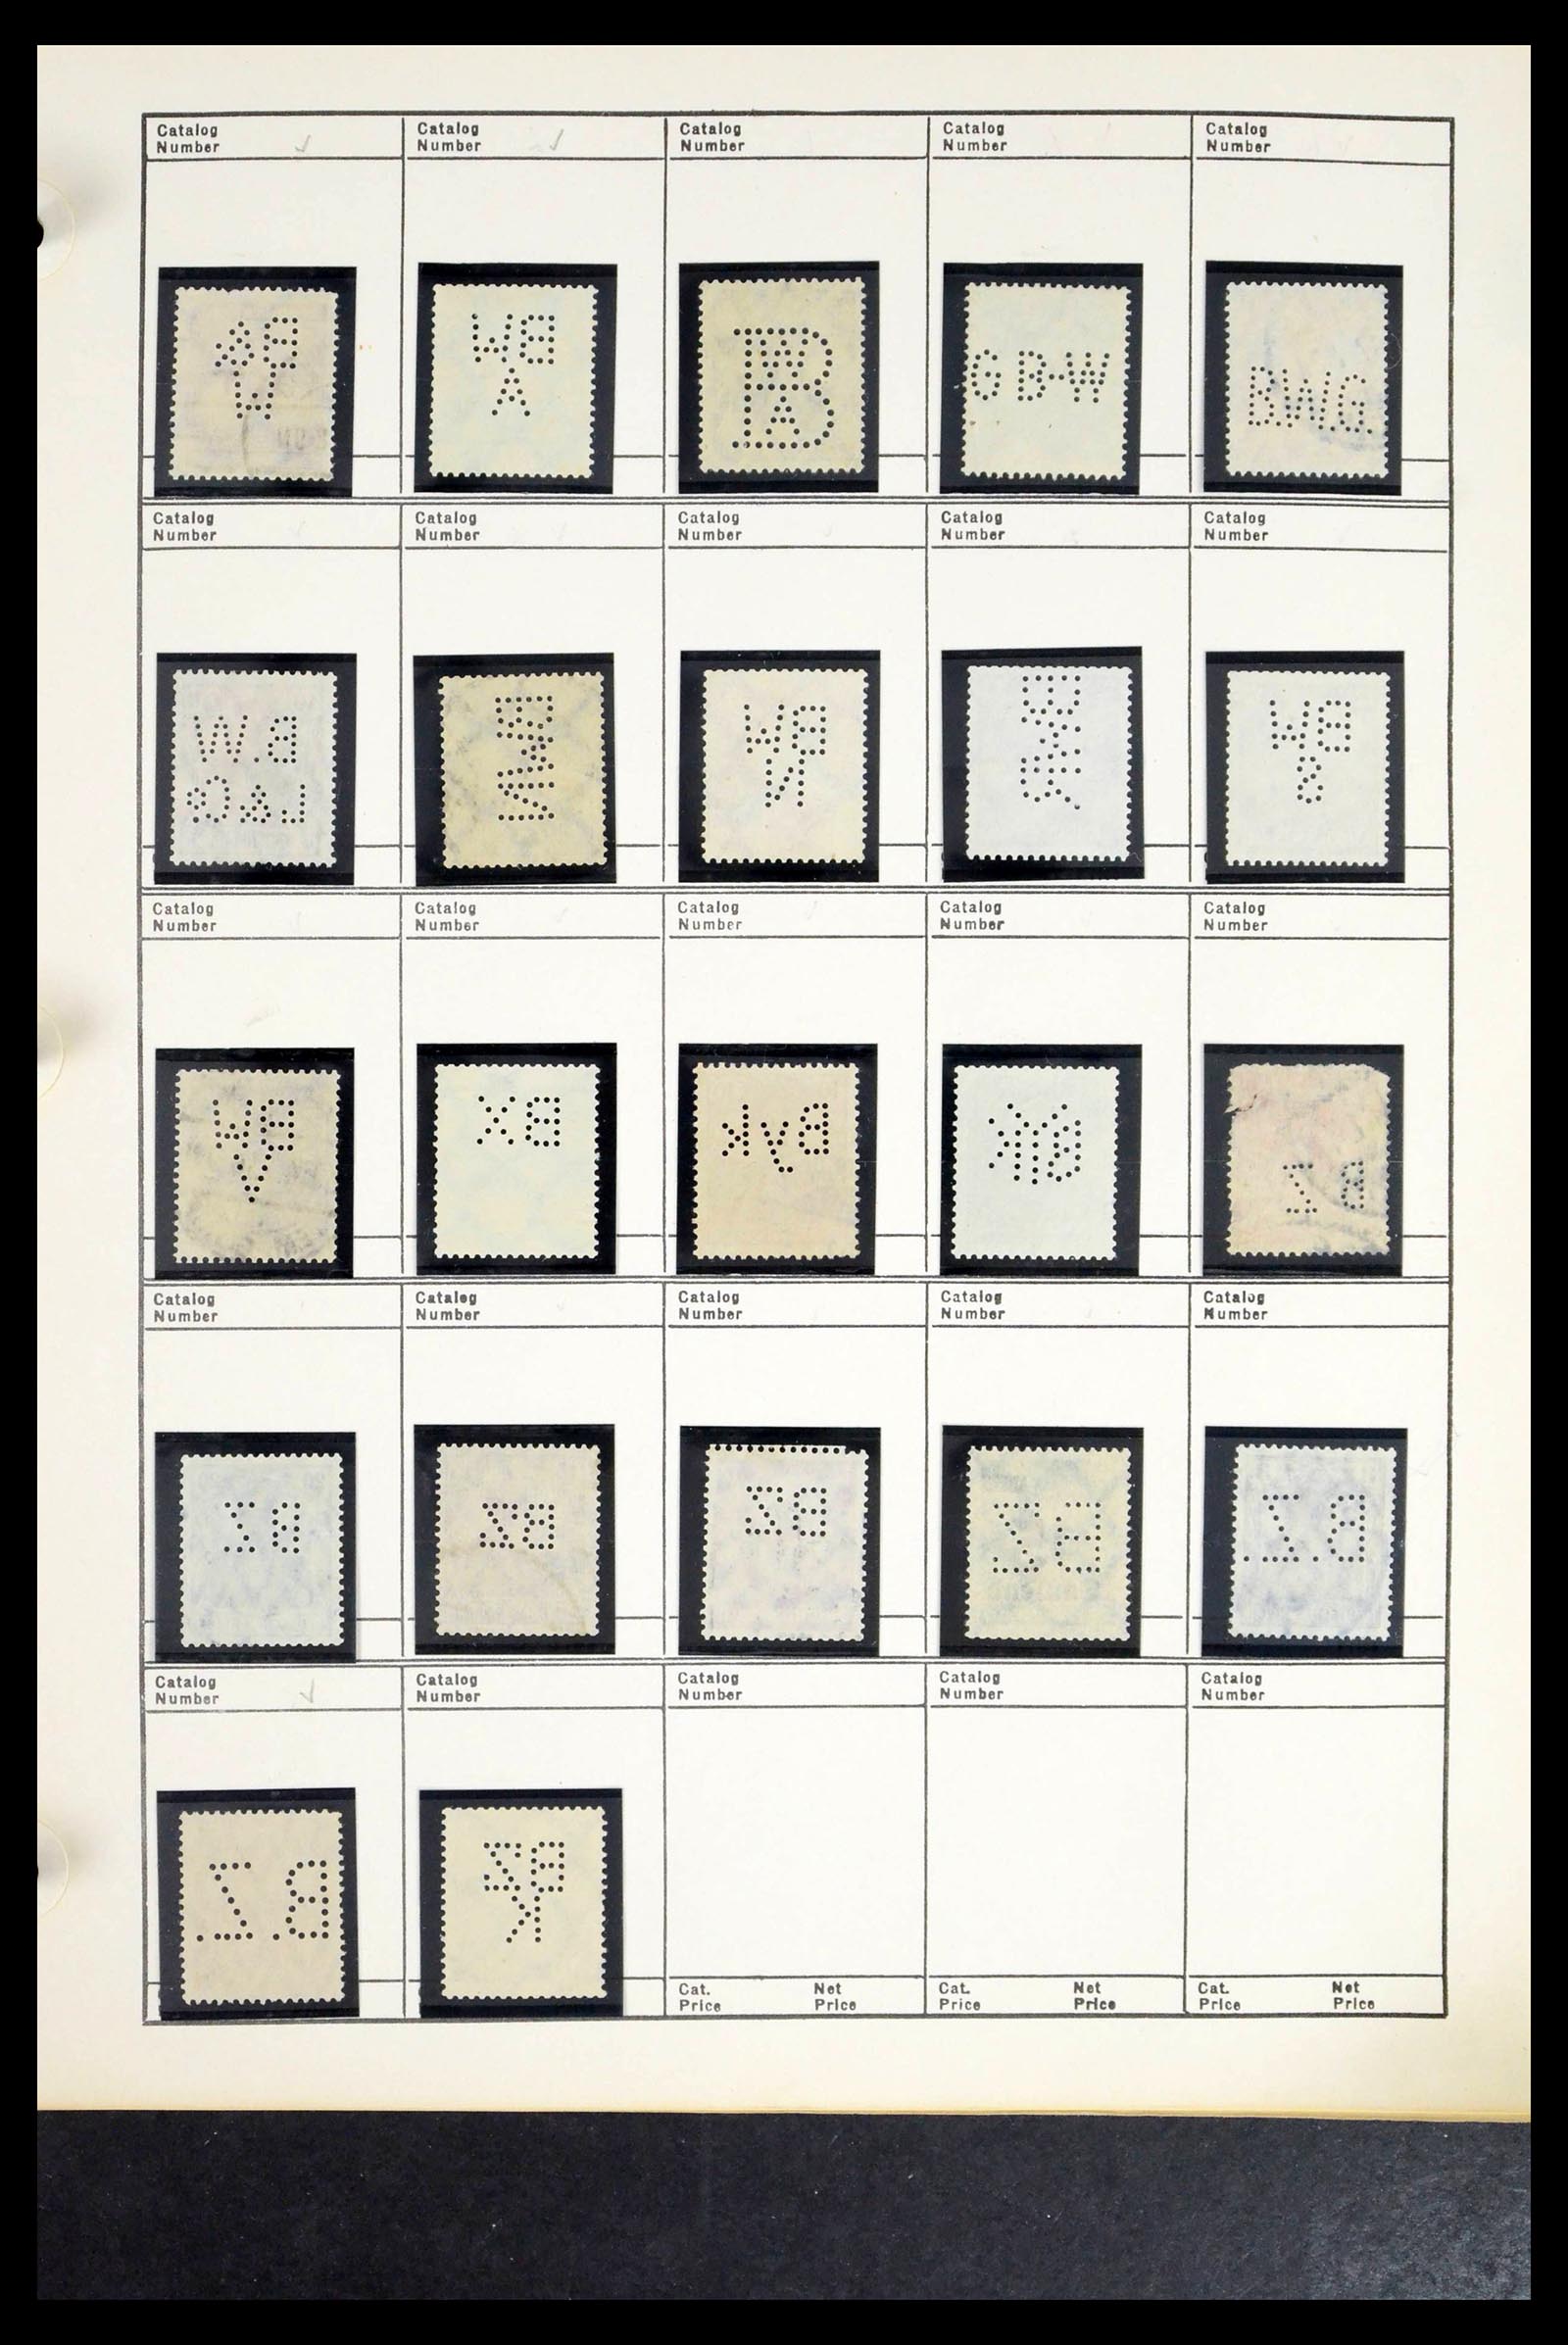 Catalog Number
Catalog Number
Catalog Number
Catalog Number
Catalog Number
B&
W
BW
A
B
W
A
G B-W
B.W.G.
Catalog Number
Catalog Number
Catalog Number
Catalog Number
Catalog Number
B.W
L&Co
BWN
BW
N
BWR
BW
S
Catalog Number
Catalog Number
Catalog Number
Catalog Number
Catalog Number
BW
V
BX
Byk
BYK
B Z
Catalog Number
Catalog Number
Catalog Number
Catalog Number
Catalog Number
B Z
BZ
BZ
BZ
B.Z.
Catalog Number
Catalog Number
Catalog Number
Catalog Number
Catalog Number
B.Z.
BZ
K
Cat. Price Net Price
Cat. Price Net Price
Cat. Price Net Price